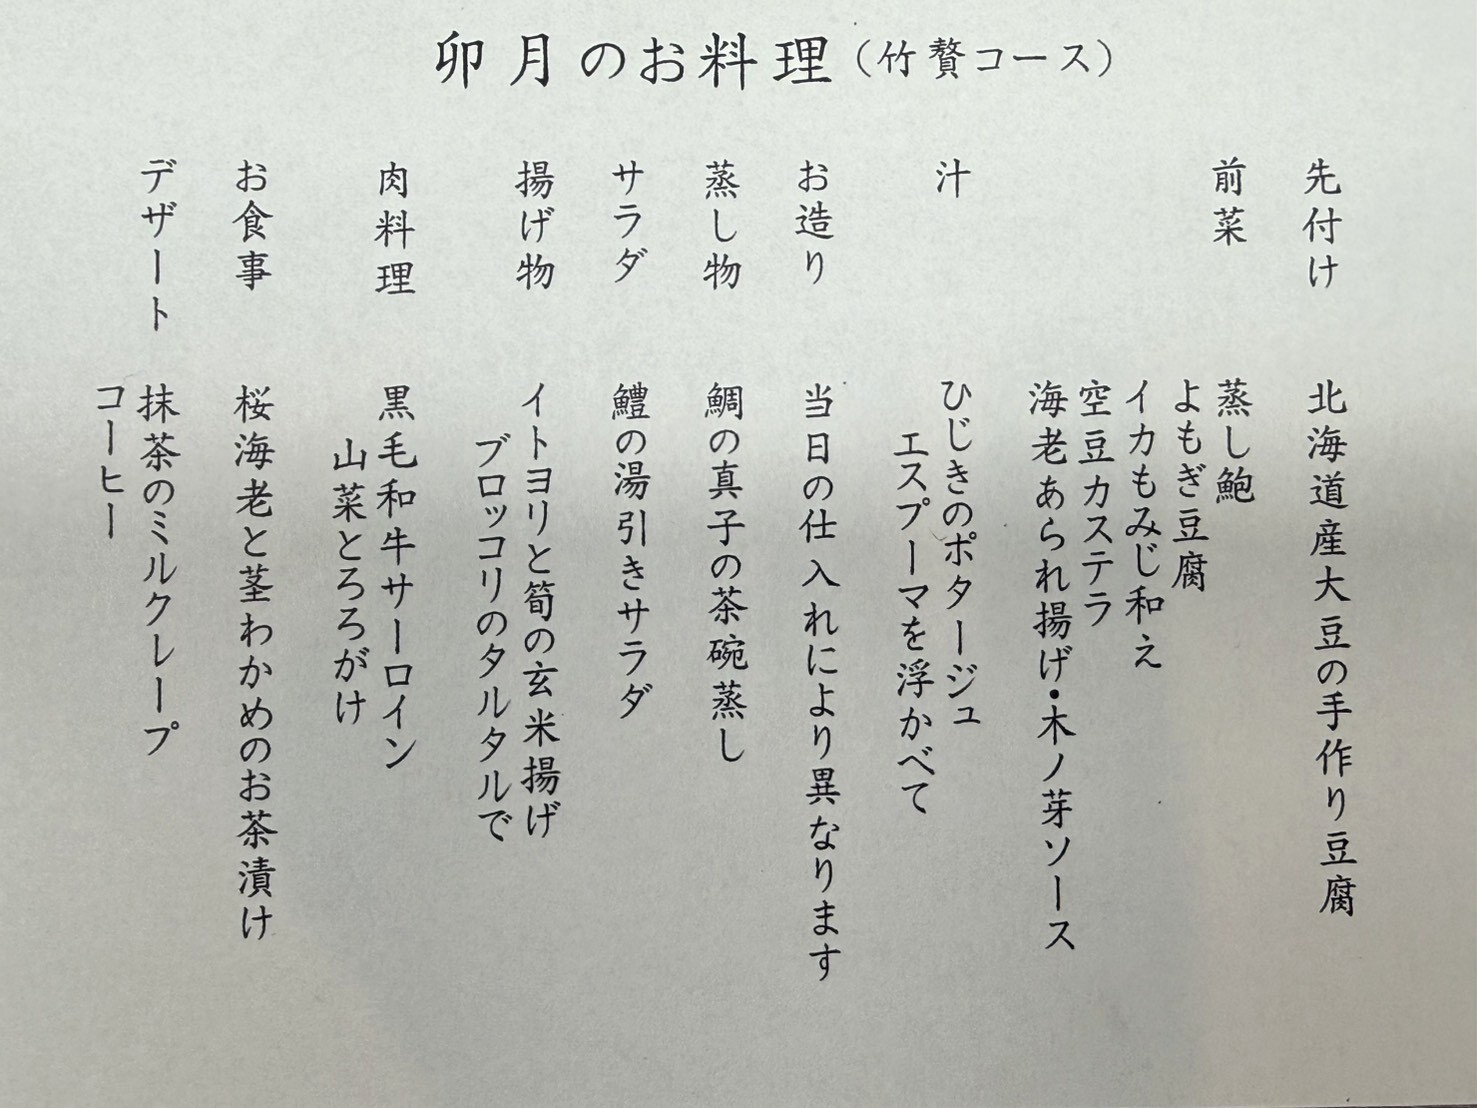 卯月のお料理（竹贅コース）
先付け
北海道産大豆の手作り豆腐
前菜
蒸し鮑
よもぎ豆腐
イカもみじ和え
空豆カステラ
海老あられ揚げ・木ノ芽ソース
汁
ひじきのポタージュ
エスプーマを浮かべて
お造り
当日の仕入れにより異なります
蒸し物
鯛の真子の茶碗蒸し
サラダ
鱧の湯引きサラダ
揚げ物
イトヨリと筍の玄米揚げ
ブロッコリのタルタルで
肉料理
黒毛和牛サーロイン
山菜とろろがけ
お食事
桜海老と茎わかめのお茶漬け
デザート
抹茶のミルクレープ
コーヒー